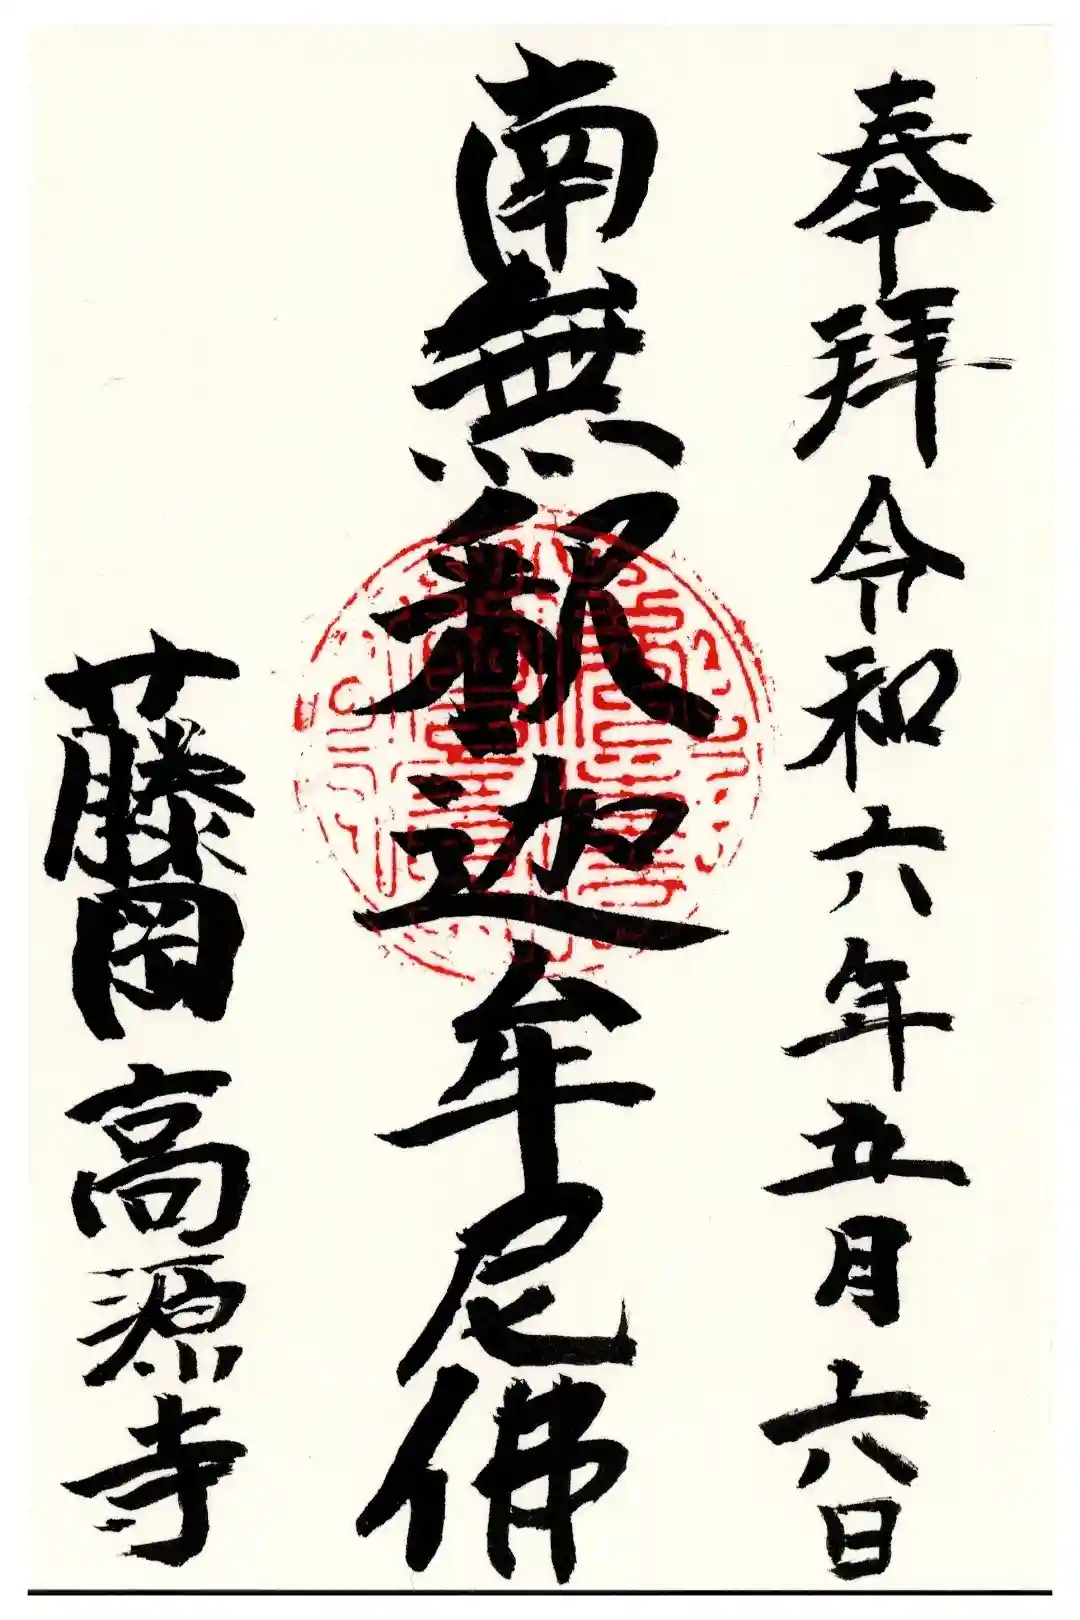 奉拜令和六年五月六日
南無釈迦牟尼佛
藤岡高源寺